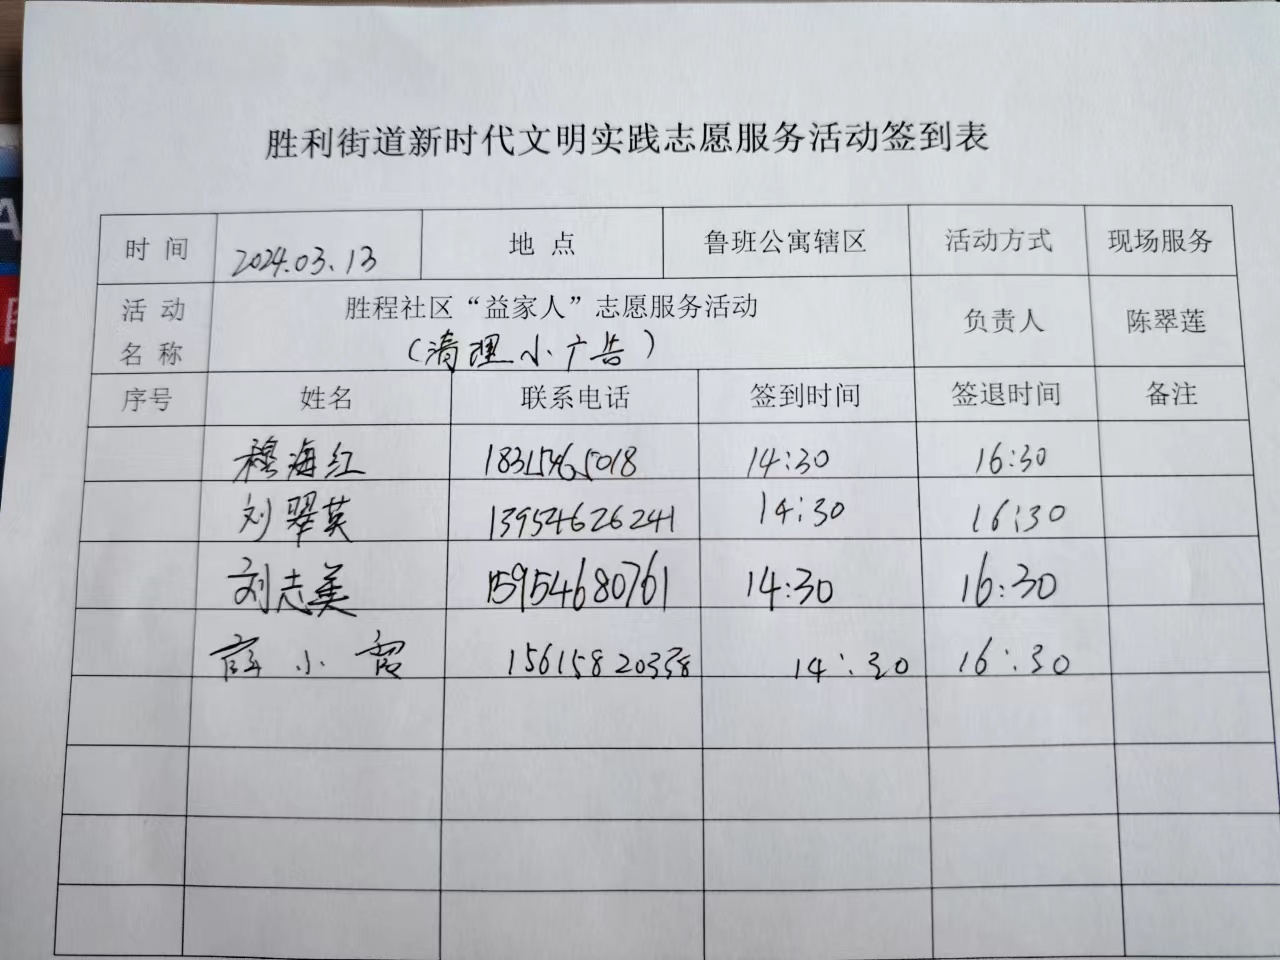 胜利街道新时代文明实践志愿服务活动签到表
时间 2024.03.13 地点 鲁班公寓辖区 活动方式 现场服务
活动名称 胜程社区“益家人”志愿服务活动 负责人 陈翠莲
(清理小广告)
序号 姓名 联系电话 签到时间 签退时间 备注
穆海红 14:30 16:30
刘翠英 13954626241 14:30 16:30
刘志美 15954680761 14:30 16:30
薛小霞 14:30 16:30